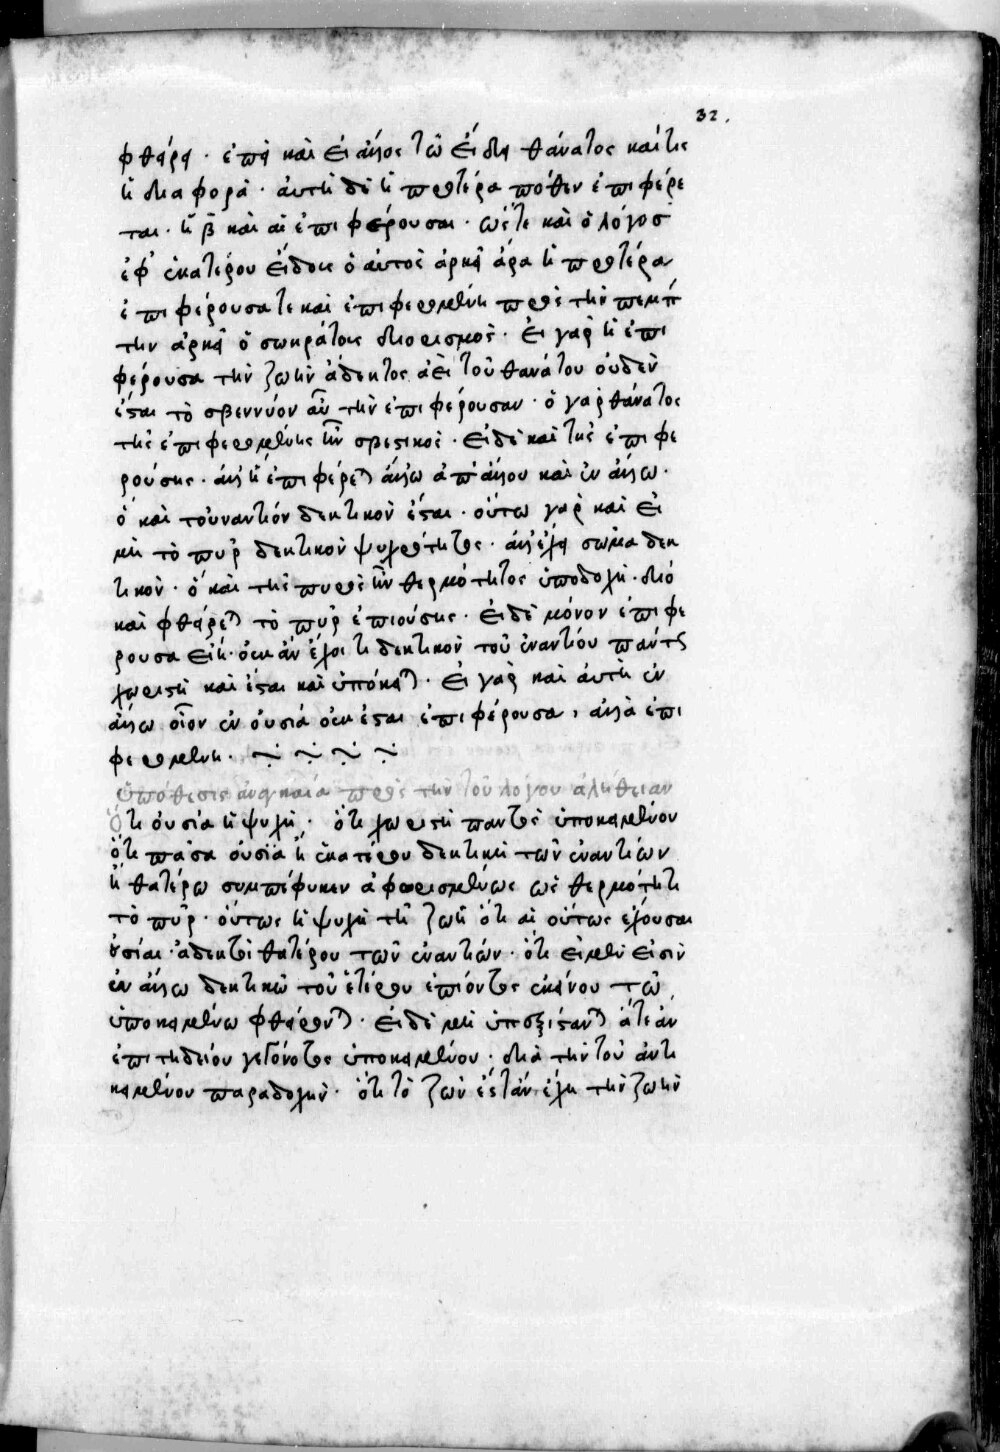 32.
φθείρει· ἐπεὶ καὶ εἰ ἄλλος τῶ εἴδει θάνατος καί τις
ἡ διαφορά· αὐτὴ δὲ ἡ προτέρα πόθεν ἐπιφέρε
ται· ἢ β καὶ αἱ ἐπιφέρουσαι· ὥστε καὶ ὁ λόγος
ἐφ' ἑκατέρου εἴδους ὁ αὐτὸς ἀρκεῖ ἄρα ἡ προτέρα
ἐπιφέρουσά τε καὶ ἐπιφερομένη πρὸς τὴν πέμπ
την ἀρκεῖ ὁ σωκράτους διορισμός· εἰ γὰρ ἡ ἐπι
φέρουσα τὴν ζωὴν ἄδεκτος ἀεὶ τοῦ θανάτου οὐδὲν
ἔσται τὸ σβεννύον αὖ τὴν ἐπιφέρουσαν· ὁ γὰρ θάνατος
τῆς ἐπιφερομένης ἦν σβεστικός· εἰ δὲ καὶ τῆς ἐπιφε
ρούσης· ἀλλ' ἢ ἐπιφέρεται ἄλλω ἀπ' ἄλλου καὶ ἐν ἄλλω·
ὃ καὶ τοὐναντίον δεκτικὸν ἔσται· οὕτω γὰρ καὶ εἰ
μὴ τὸ πῦρ δεκτικὸν ψυχρότητος· ἀλλ' ἔχει σῶμα δεκ
τικόν· ὃ καὶ τῆς πυρὸς ἦν θερμότητος ὑποδοχή· διὸ
καὶ φθείρεται τὸ πῦρ ἐπιούσης· εἰ δὲ μόνον ἐπιφέ
ρουσα εἴη· οὐκ ἂν ἔχοι τι δεκτικὸν τοῦ ἐναντίου παντὸς
χωριστὴ καὶ ἔσται καὶ ὑπόκειται· εἰ γὰρ καὶ αὐτὴ ἐν
ἄλλω οἷον ἐν οὐσία οὐκ ἔσται ἐπιφέρουσα, ἀλλὰ ἐπι
φερομένη·
ὑπόθεσις ἀναγκαία πρὸς τὴν τοῦ λόγου ἀλήθειαν
Ὅτι οὐσία ἡ ψυχή· ὅτι χωριστὴ παντὸς ὑποκειμένου
ὅτι πᾶσα οὐσία ἢ ἑκατέρου δεκτικὴ τῶν ἐναντίων
ἢ θατέρω συμπέφυκεν ἀφωρισμένως ὡς θερμότητι
τὸ πῦρ· οὕτως ἡ ψυχὴ τῆ ζωῆ ὅτι αἱ οὕτως ἔχουσαι
οὐσίαι· ἄδεκτοι θατέρου τῶν ἐναντίων· ὅτι εἰ μέν εἰσιν
ἐν ἄλλω δεκτικῶ τοῦ ἑτέρου ἐπιόντος ἐκείνου τῶ
ὑποκειμένω φθείρονται· εἰ δὲ μὴ ὑπεξίστανται ἅτε ἀν
επιτηδείου γεγονότος ὑποκειμένου· διὰ τὴν τοῦ ἀντι
κειμένου παραδοχήν· ὅτι τὸ ζῶν ἔστ' ἂν ἔχη τὴν ζωὴν